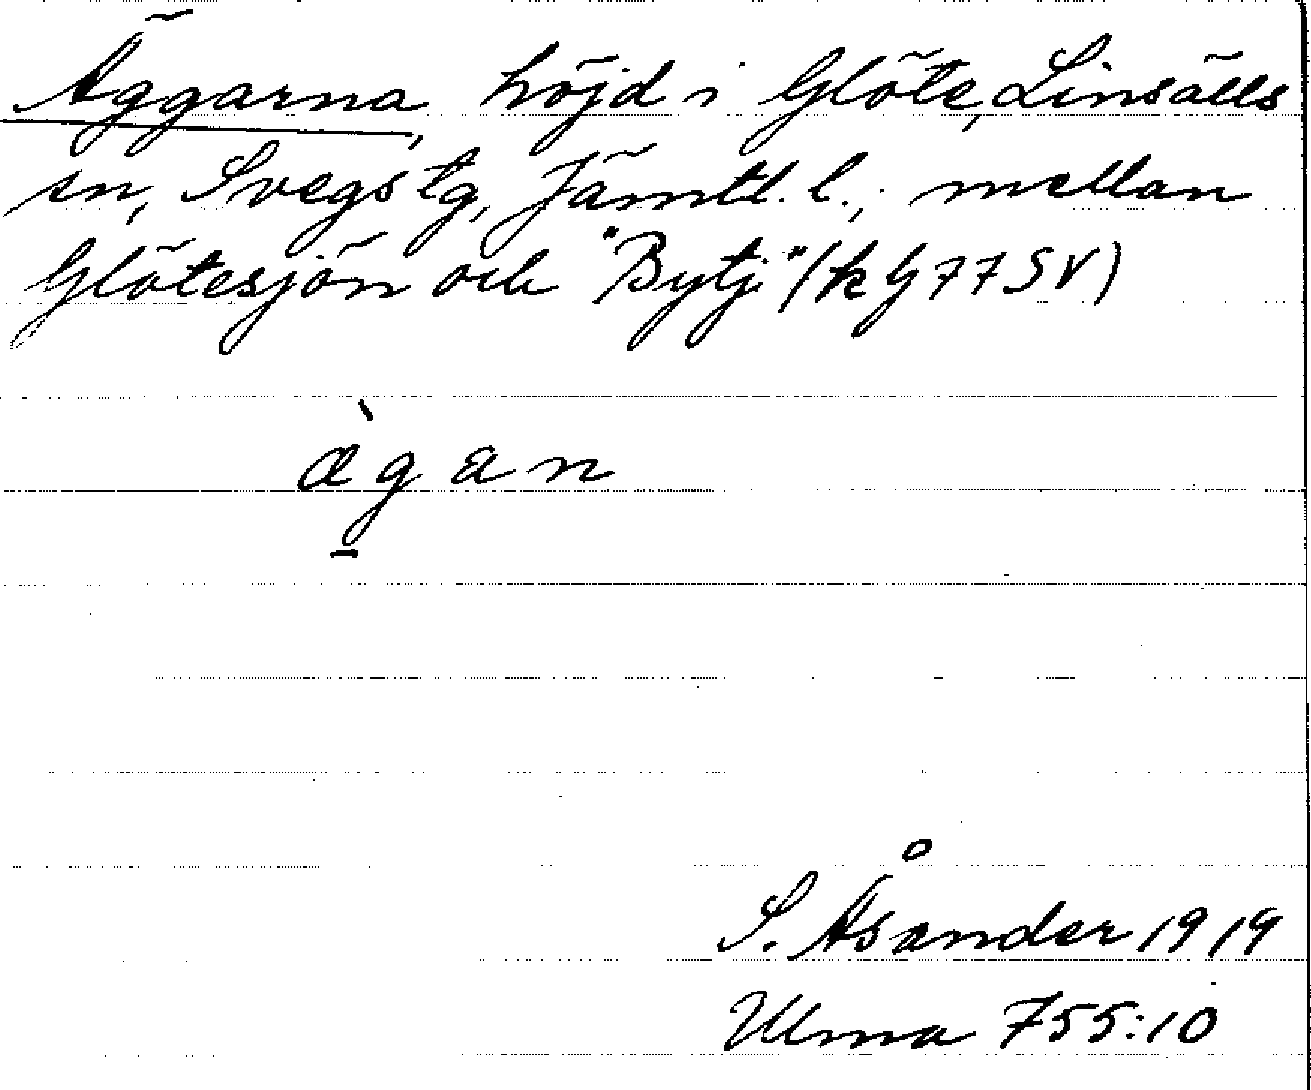 Äggarna, höjd i Glöte, Linsälls
sn, Svegs tg, Jämtl. l.; mellan
Glötesjön och "Bytj" (k G 77 SV)
æ̀g̱an
S. Åsander 1919
Ulma 755:10